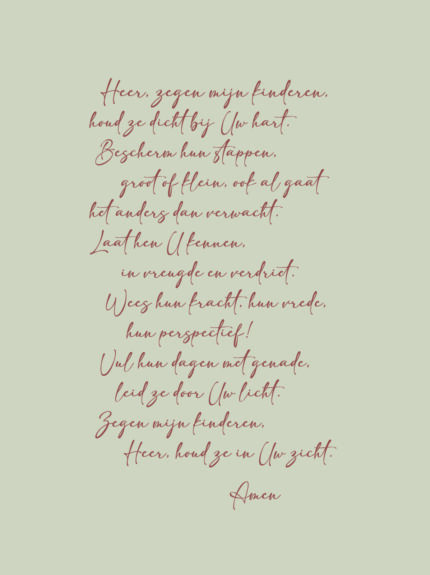 Heer, zegen mijn kinderen,
houd ze dicht bij Uw hart.
Bescherm hun stappen,
groot of klein, ook al gaat
het anders dan verwacht.
Laat hen U kennen,
in vreugde en verdriet.
Wees hun kracht, hun vrede,
hun perspectief!
Vul hun dagen met genade,
leid ze door Uw licht.
Zegen mijn kinderen,
Heer, houd ze in Uw zicht.
Amen